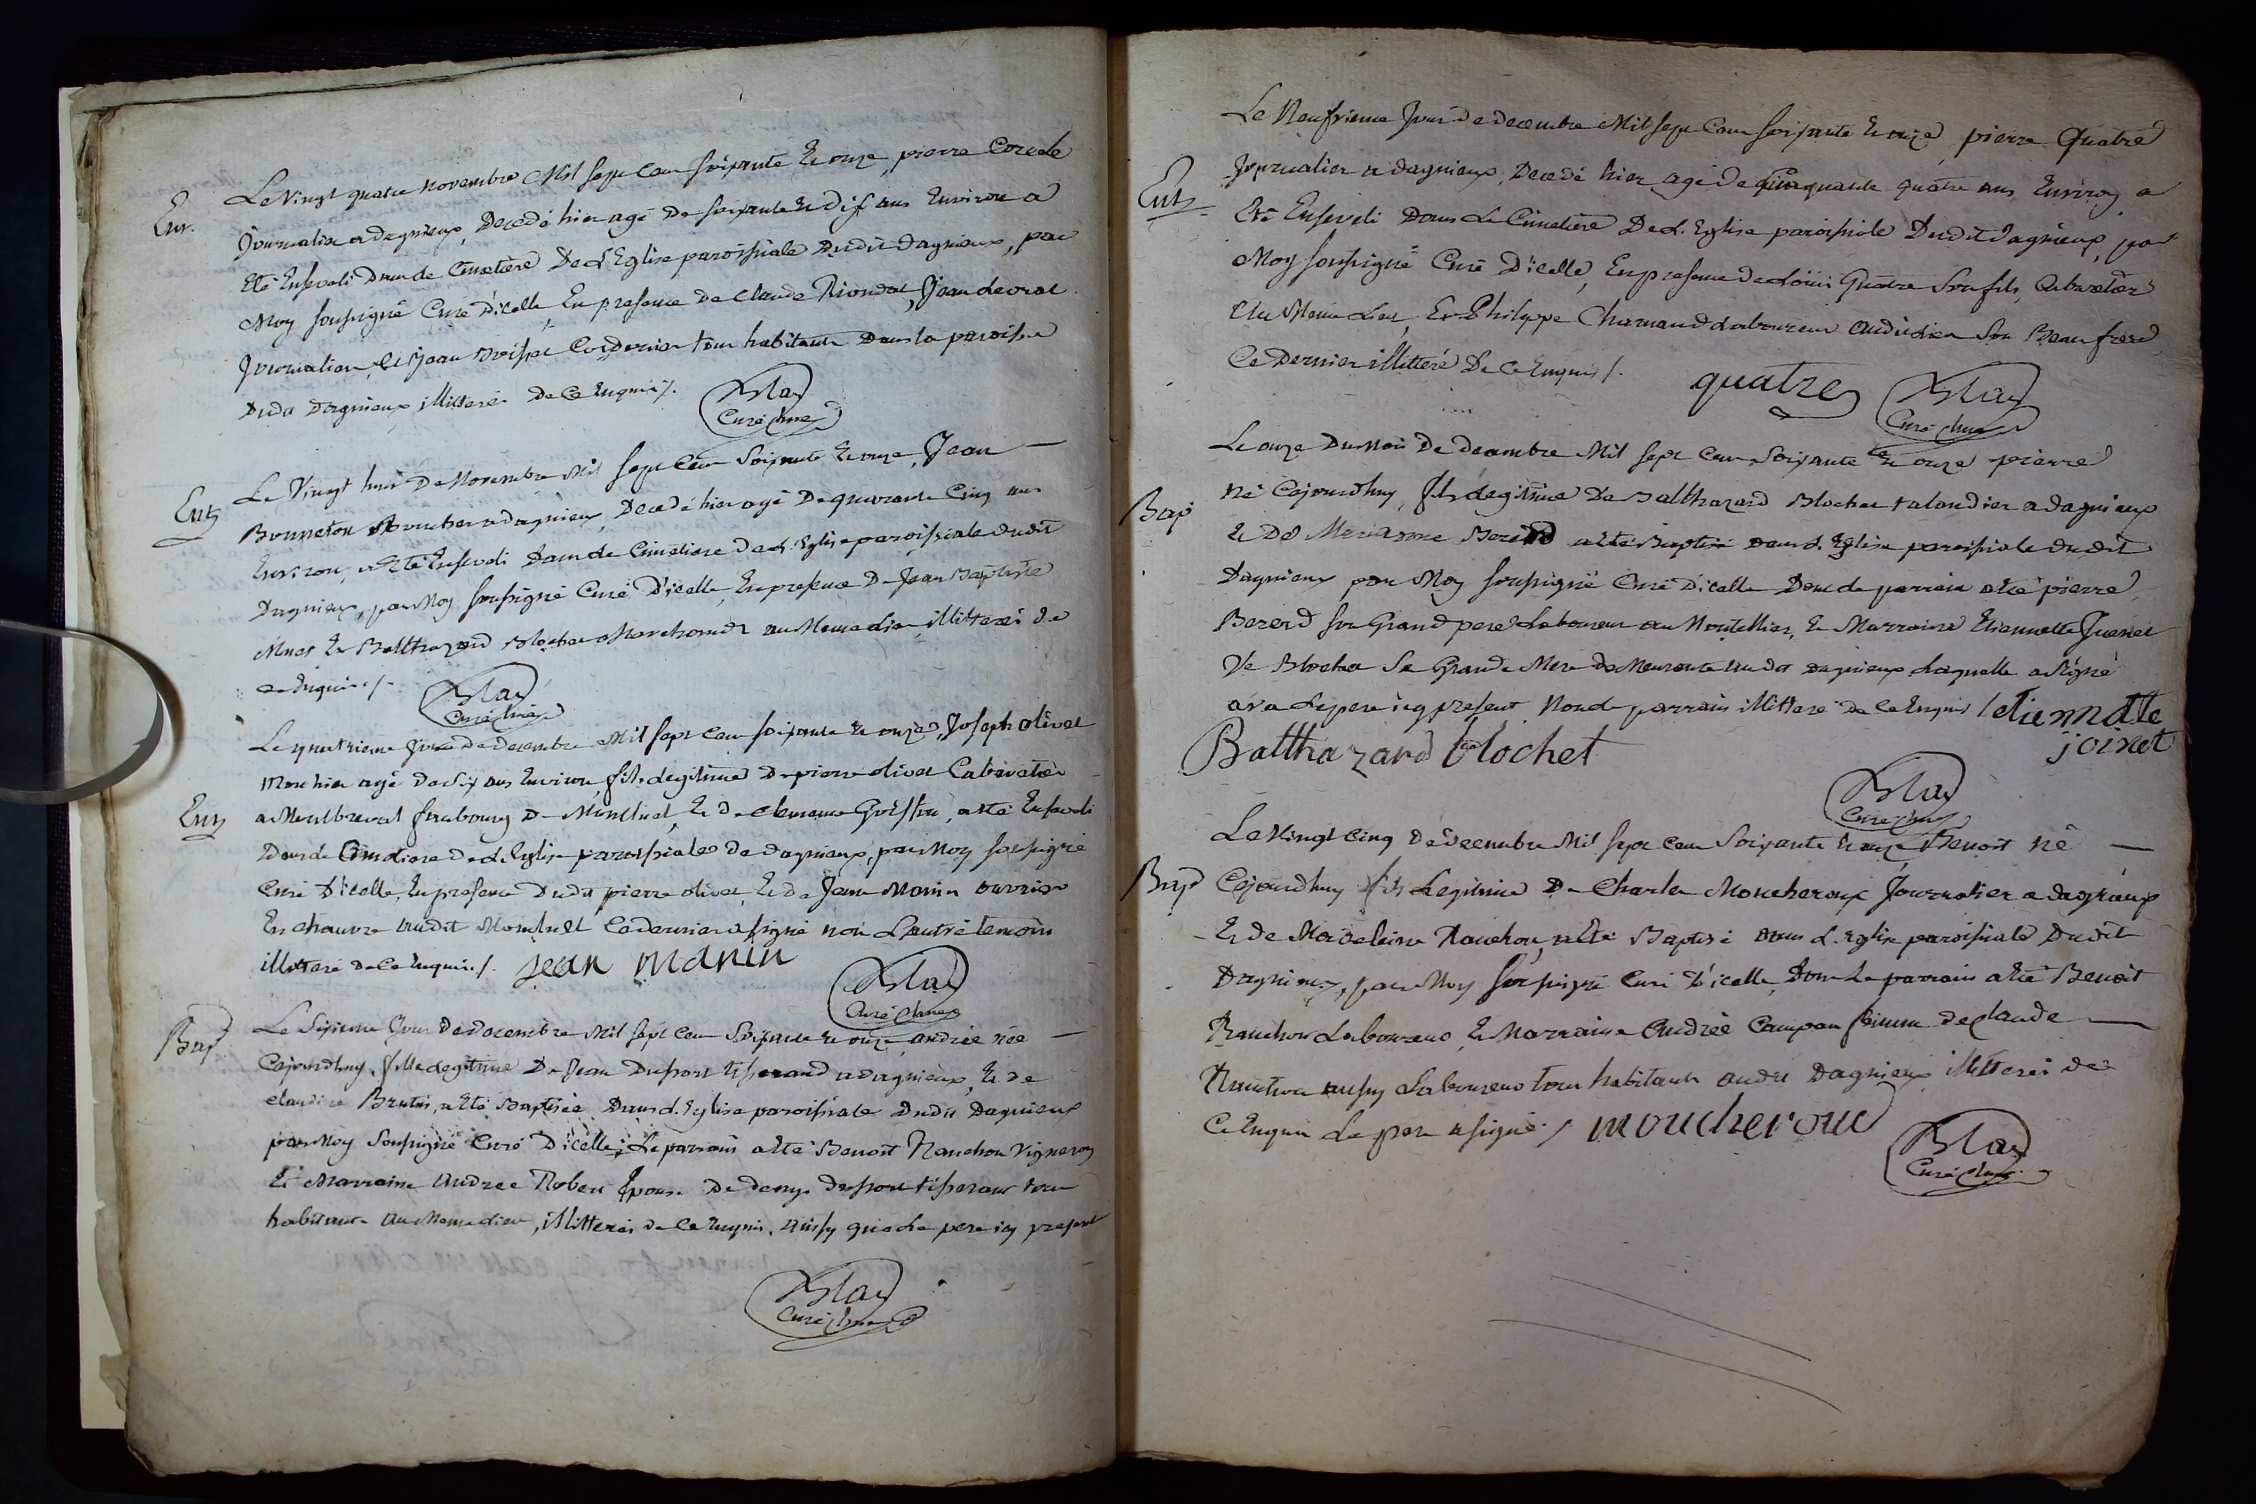 Ent.
Le Vingt quatre novembre Mil sept Cent soixante Et onze, pierre
Journalier a dagnieux, Decedé hier agé De soixante Et dix ans Environ a
Eté Enseveli Dans le Cimetiere De L'Eglise paroissiale Dudit dagnieux, par
Moy soussigné Curé D'icelle, En presence de Claude Riondet, Jean
Journalier, Et Jean Cordonier tous habitants Dans la paroisse
Dudit Dagnieux, illitteré De Ce Enquis /.
Blay
Curé
Ent
Le Vingt huit De Novembre Mil sept Cent Soixante Et onze, Jean
Bonneton a dagnieux, Decedé hier agé De quarante Cinq ans
Environ, a Eté Enseveli Dans le Cimetiere De L'Eglise paroissiale dudit
Dagnieux, par Moy soussigné Curé D'icelle, En presence De Jean Baptiste
Et Balthazard Blochet Marchands au Meme Lieu, illitterés de
ce Enquis /.
Blay
Curé
Le quatrieme Jour De decembre Mil sept Cent soixante Et onze, Joseph olivet
Mort hier agé De Six ans Environ, fils Legitime De pierre olivet Cabaretier
Ent
a faubourg De Montluel, Et De Clemence, a Eté Enseveli
Dans le Cimetiere De L'Eglise paroissiale de dagnieux, par Moy soussigné
Curé D'icelle, En presence Dudit pierre olivet, Et De Jean Manin ouvrier
En chanvre audit Montluel Ce dernier a signé non L'autre temoin
illitteré De Ce Enquis /. jean manin
Blay
Curé
Bap
Le Sixieme Jour De decembre Mil sept Cent Soixante Et onze, andrée née
Cejourdhuy, fille Legitime De Jean Dupont tisserand a dagnieux, Et de
claudine, a Eté Baptisée Dans L'Eglise paroissiale Dudit Dagnieux
par Moy Soussigné Curé D'icelle, Le parrain a Eté Benoit Ranchon Vigneron
Et Marraine Andrée Robert Epouse De Denys Dupont tisserant tous
habitants au Meme Lieu, illitterés de Ce Enquis, ainsy que Le pere icy present
Blay
Curé
Le Neufvieme Jour De decembre Mil sept Cent soixante Et onze, pierre Quatre
Ent
Journalier a dagnieux, Decedé hier agé De Cinquante quatre ans Environ, a
Eté Enseveli Dans Le Cimetiere De L'Eglise paroissiale Dudit dagnieux, par
Moy soussigné Curé D'icelle, En presence De Louis Quatre Son fils, Cabaretier
Au Meme Lieu, Et Philippe Chamand Laboureur audit Lieu Son Beau frere,
Ce Dernier illitteré De Ce Enquis /.
quatre
Blay
Curé
Le onze Du Mois De decembre Mil sept Cent Soixante Et onze pierre
Bap
né Cejourdhuy, fils Legitime De Balthazard Blochet taladier a dagnieux
Et De Marianne Bererd a Eté Baptisé Dans L'Eglise paroissiale dudit
Dagnieux, par Moy soussigné Curé D'icelle Dont Le parrain a Eté pierre
Bererd Son Grand pere Laboureur au Montellier, Et Marraine Etiennette Joenet
Ve Blochet Sa Grande Mere Demeurante audit dagnieux Laquelle a Signé
avec Le pere icy present Non Le parrain illitteré De Ce Enquis / etiennatte
joinet
Balthazard blochet
Blay
Curé
Le Vingt Cinq Decembre Mil sept Cent Soixante Et onze Benoit né
Bap
Cejourdhuy fils Legitime De Charles Moucheroux Journalier a dagnieux
Et de Madeleine Ranchon, a Eté Baptisé Dans L'Eglise paroissiale Dudit
Dagnieux, par Moy soussigné Curé D'icelle, Dont Le parrain a Eté Benoit
Ranchon Laboureur, Et Marraine Andrée Campan femme de Claude
Ranchon aussy Laboureur tous habitants audit Dagnieux illitterés De
Ce Enquis Le pere a signé /. moucherouc
Blay
Curé